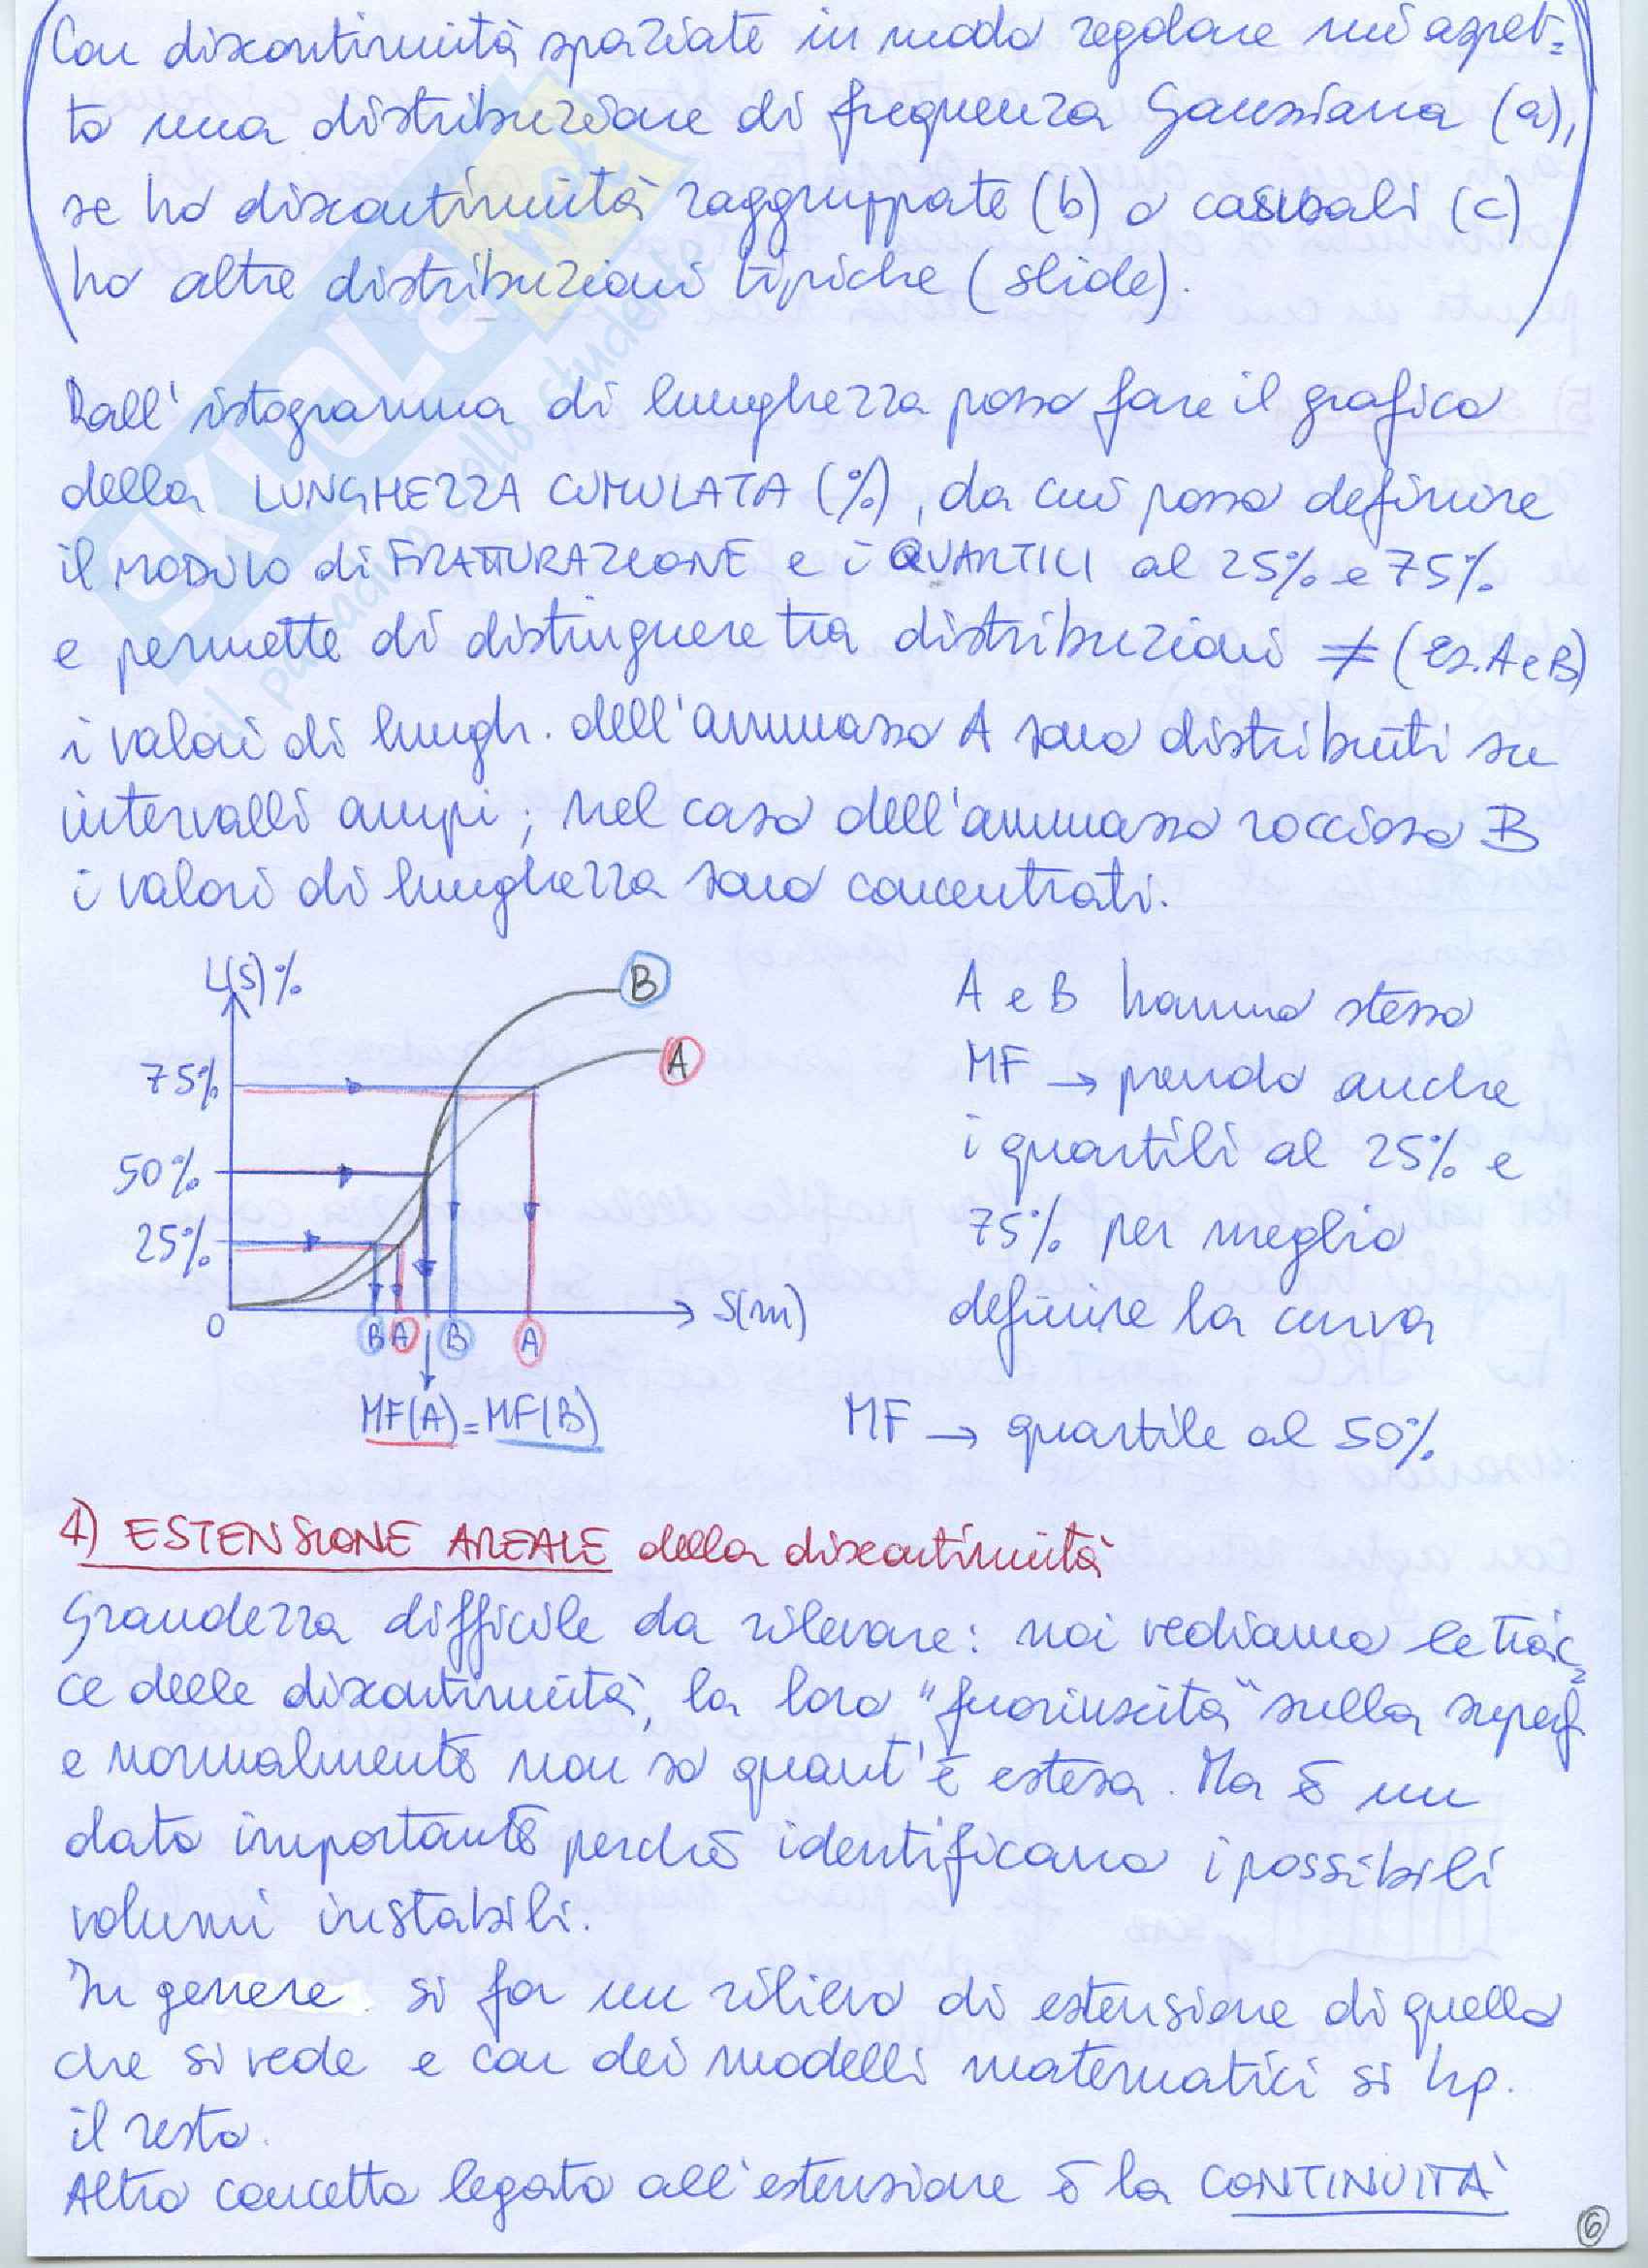 Con discontinuità spaziate in modo regolare mi aspet=
to una distribuzione di frequenza Gaussiana (a),
se ho discontinuità raggruppate (b) o casuali (c)
ho altre distribuzioni tipiche (slide).
Dall'istogramma di lunghezza posso fare il grafico
della LUNGHEZZA CUMULATA (%), da cui posso definire
il MODULO di FRATTURAZIONE e i QUARTILI al 25% e 75%
e permette di distinguere tra distribuzioni ≠ (Es. A e B)
i valori di lungh. dell'ammasso A sono distribuiti su
intervalli ampi; nel caso dell'ammasso roccioso B
i valori di lunghezza sono concentrati.
L(S)%
B
A
75%
50%
25%
0
S(m)
B A B A
MF(A)=MF(B)
A e B hanno stesso
MF → prendo anche
i quartili al 25% e
75% per meglio
definire la curva
MF → quartile al 50%
4) ESTENSIONE AREALE della discontinuità
Grandezza difficile da rilevare: noi vediamo le trac=
ce delle discontinuità, la loro "fuoriuscita" sulla superf
e normalmente non so quant'è estesa. Ma è un
dato importante perché identificano i possibili
volumi instabili.
In genere si fa un rilievo di estensione di quello
che si vede e con dei modelli matematici si hp.
il resto.
Altro concetto legato all'estensione è la CONTINUITÀ
6
SKUOLA.net
il paradiso dello studente